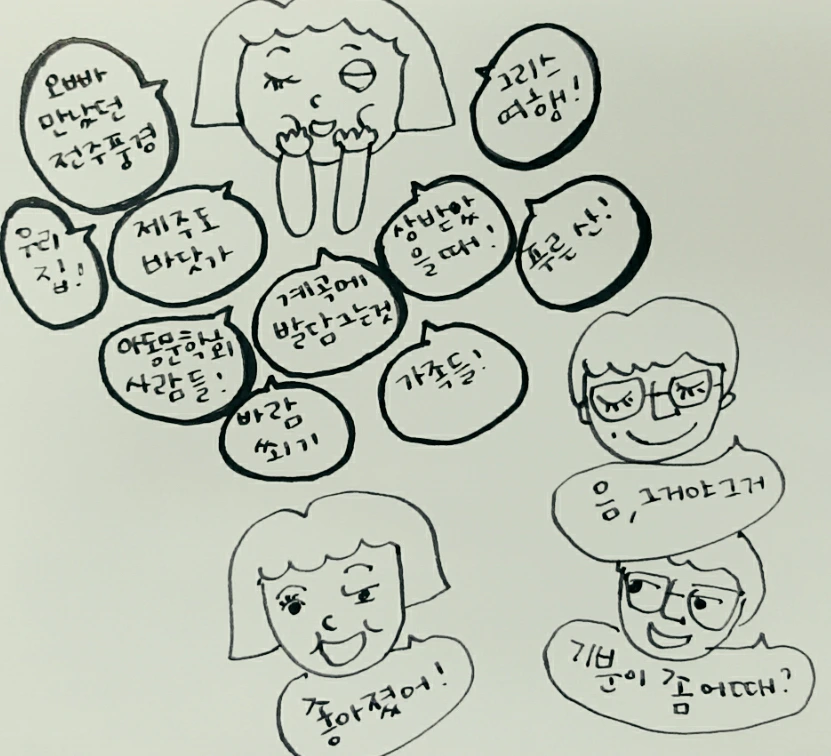 오빠야
만났던
전주풍경
그리스
여행!
우리
집!
제주도
바닷가
상받았
을때!
푸른산!
계곡에
발담그는것
아동문학회
사람들!
가족들!
바람
쐬기
음, 그거야그거
기분이 좀 어때?
좋아졌어!